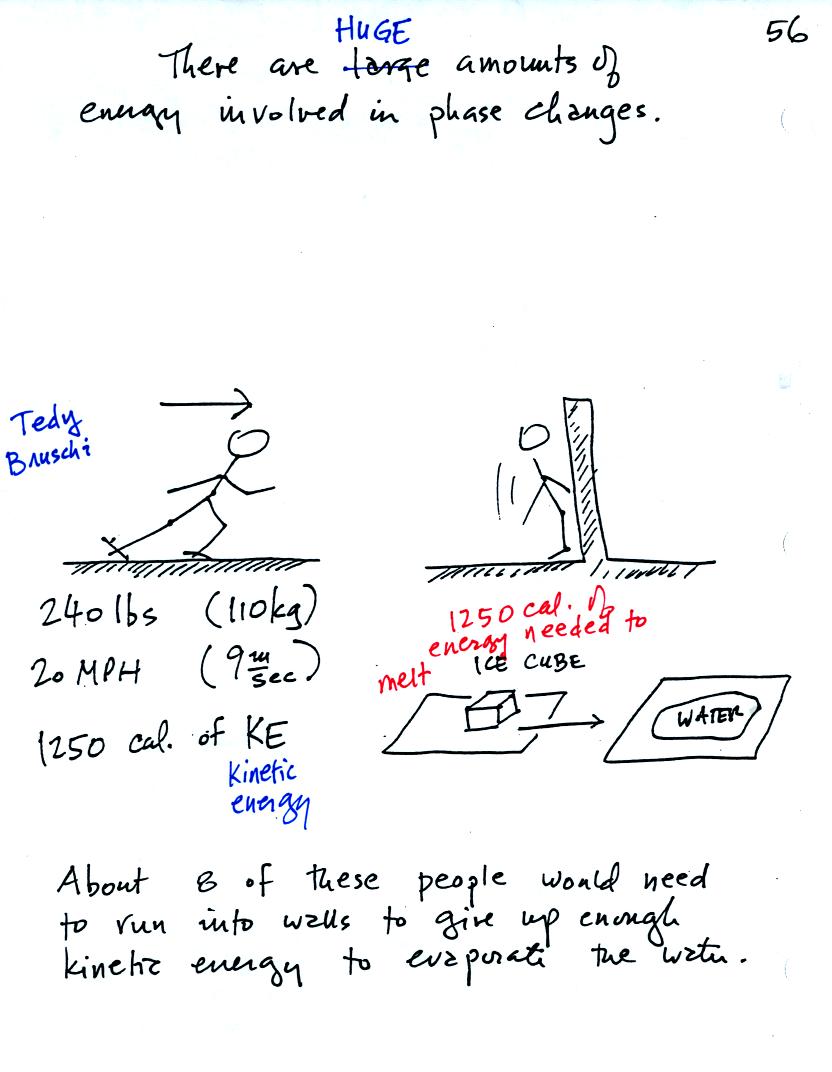 56
HUGE
There are large amounts of
energy involved in phase changes.
Tedy
Bruschi
240 lbs (110kg)
20 MPH (9 m/sec)
1250 cal. of KE
Kinetic
energy
1250 cal. of
energy needed to
melt ICE CUBE
WATER
About 8 of these people would need
to run into walls to give up enough
kinetic energy to evaporate the water.